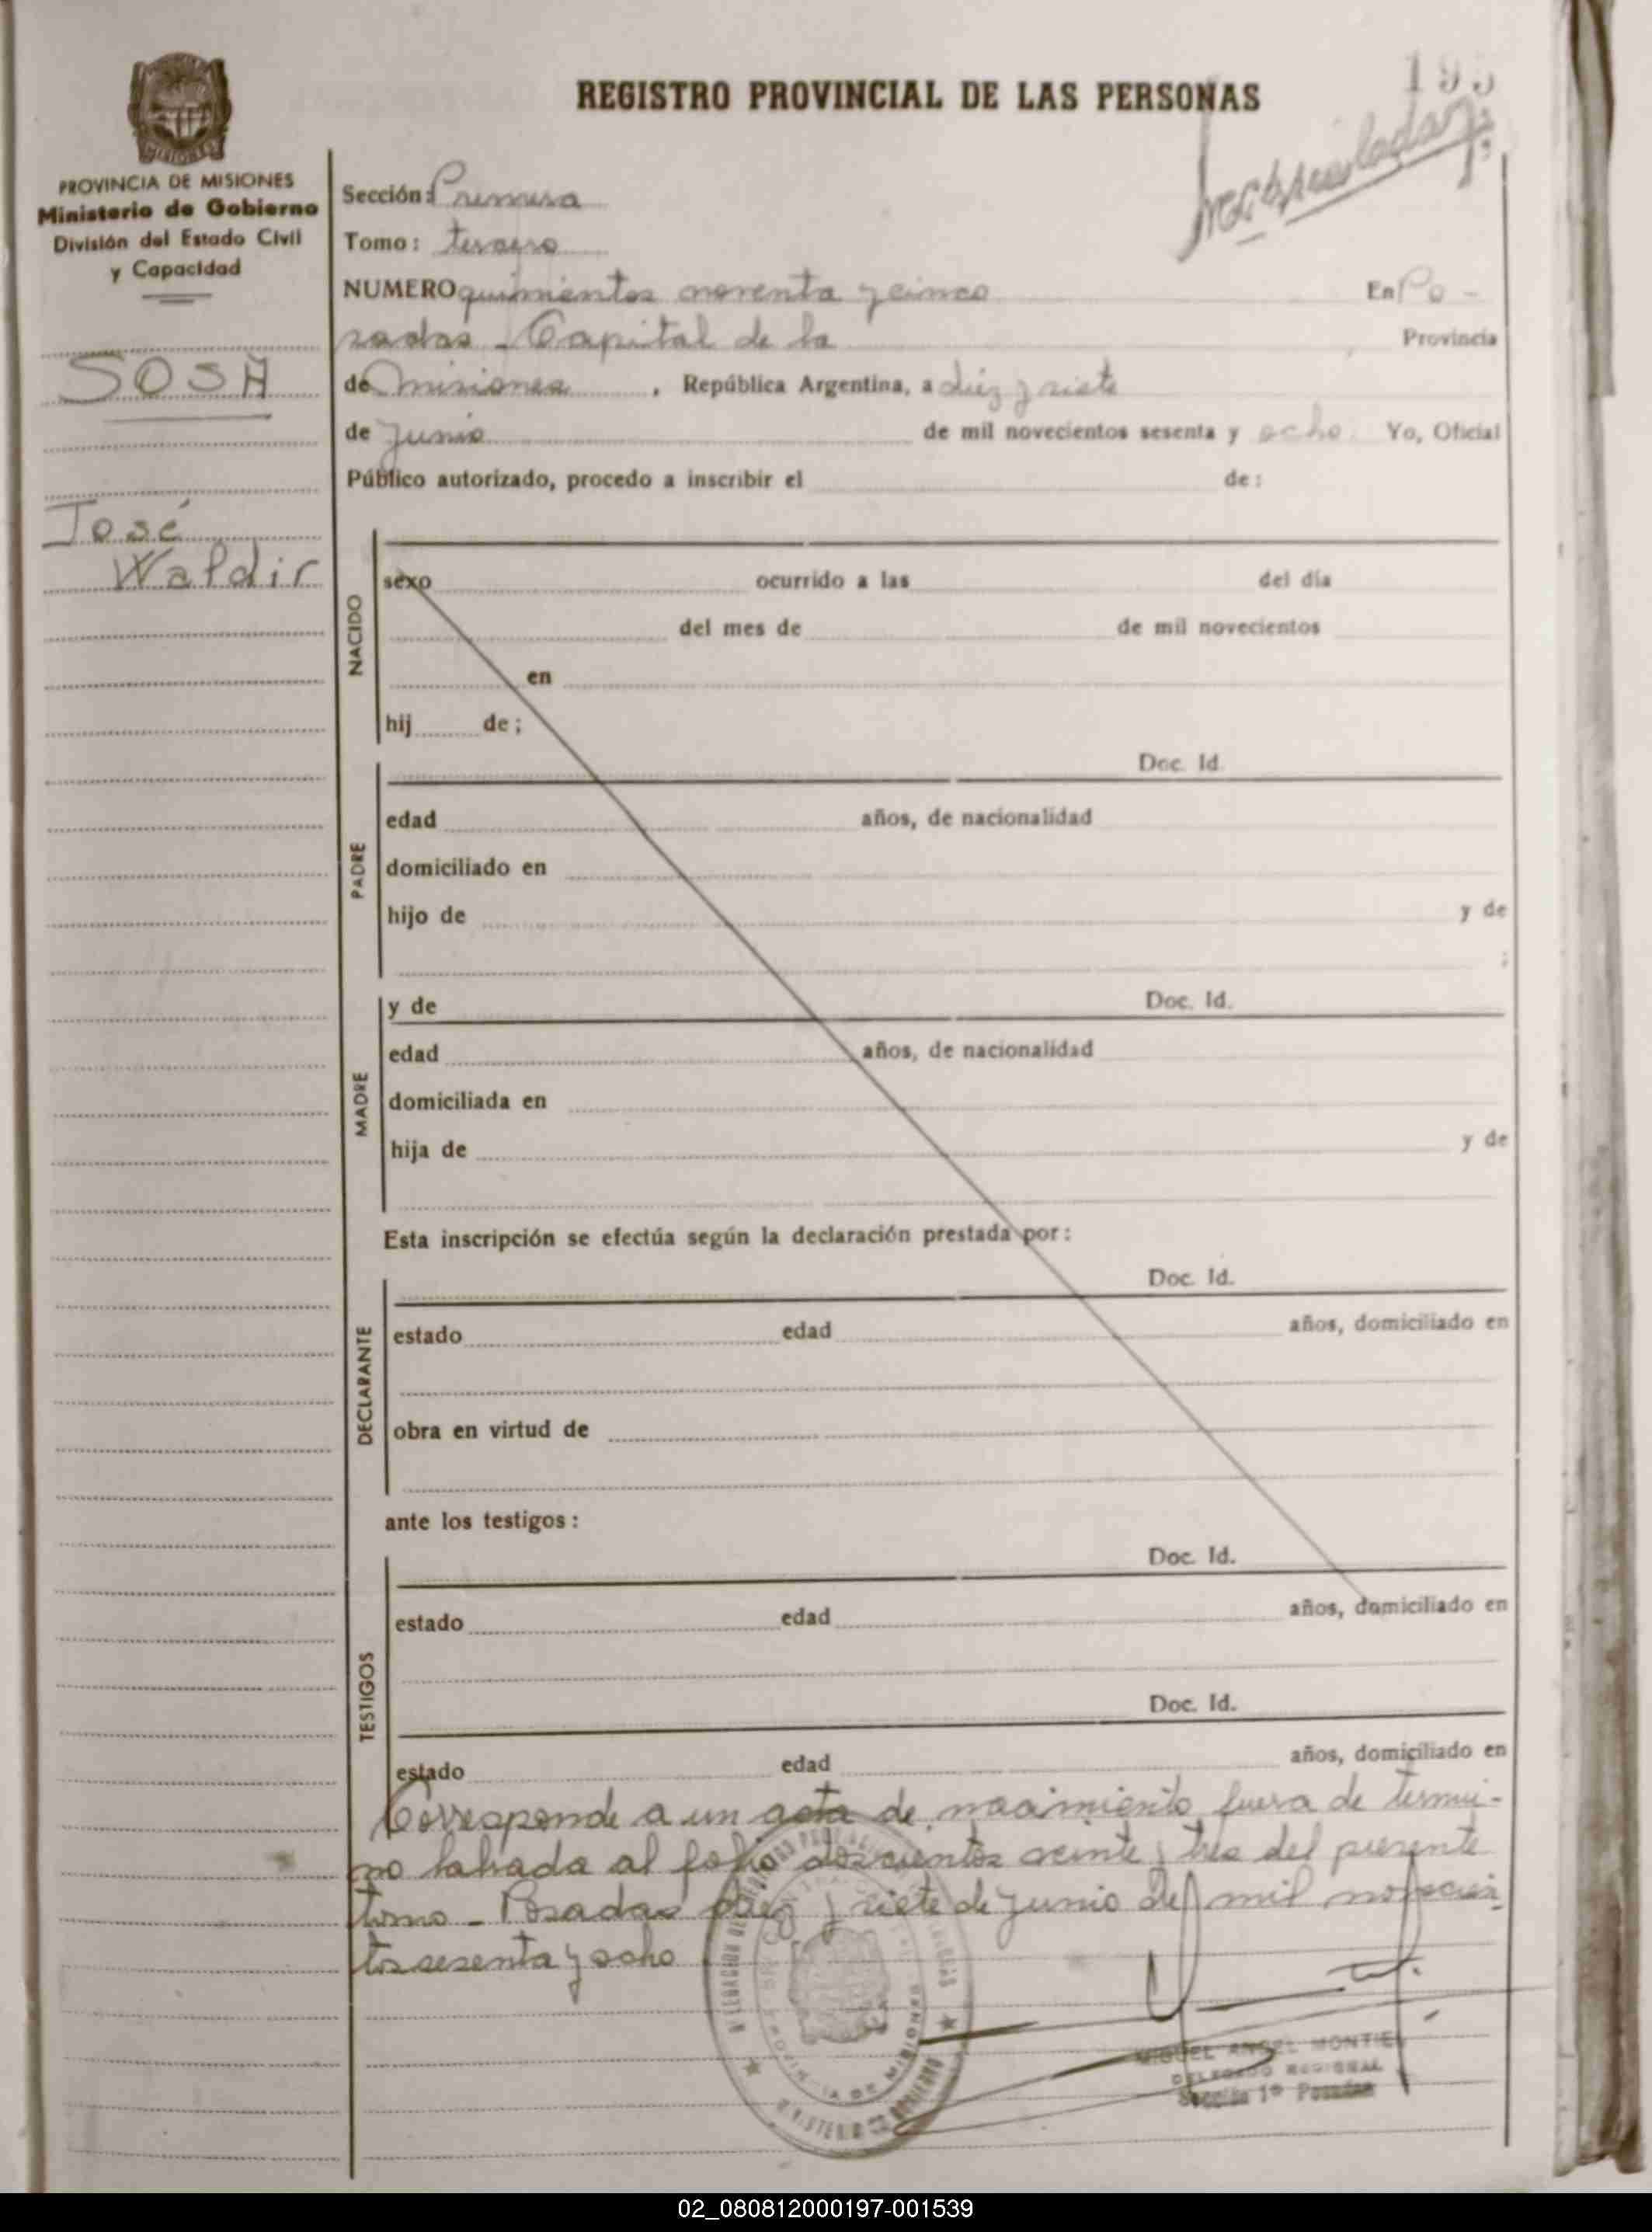 REGISTRO PROVINCIAL DE LAS PERSONAS
195
MISIONES
PROVINCIA DE MISIONES
Ministerio de Gobierno
División del Estado Civil
y Capacidad
SOSA
José
Waldir
Sección: Primera
Tomo: tercero
NUMERO quinientos noventa y cinco En Po-
sadas - Capital de la Provincia
de Misiones, República Argentina, a diez y siete
de Junio de mil novecientos sesenta y ocho Yo, Oficial
Público autorizado, procedo a inscribir el de:
NACIDO
sexo ocurrido a las del día
del mes de de mil novecientos
en
hij de;
PADRE
Doc. Id.
edad años, de nacionalidad
domiciliado en
hijo de y de
;
MADRE
y de Doc. Id.
edad años, de nacionalidad
domiciliada en
hija de y de
Esta inscripción se efectúa según la declaración prestada por:
DECLARANTE
Doc. Id.
estado edad años, domiciliado en
obra en virtud de
ante los testigos:
TESTIGOS
Doc. Id.
estado edad años, domiciliado en
Doc. Id.
estado edad años, domiciliado en
Corresponde a un acta de nacimiento fuera de termi-
no labrada al folio doscientos veinte y tres del presente
tomo - Posadas diez y siete de Junio de mil novecien-
tos sesenta y ocho
PROVINCIA DE MISIONES
MINISTERIO DE GOBIERNO
MIGUEL ANGEL MONTIEL
DELEGADO REGIONAL
Sección 1º Posadas
02_080812000197-001539